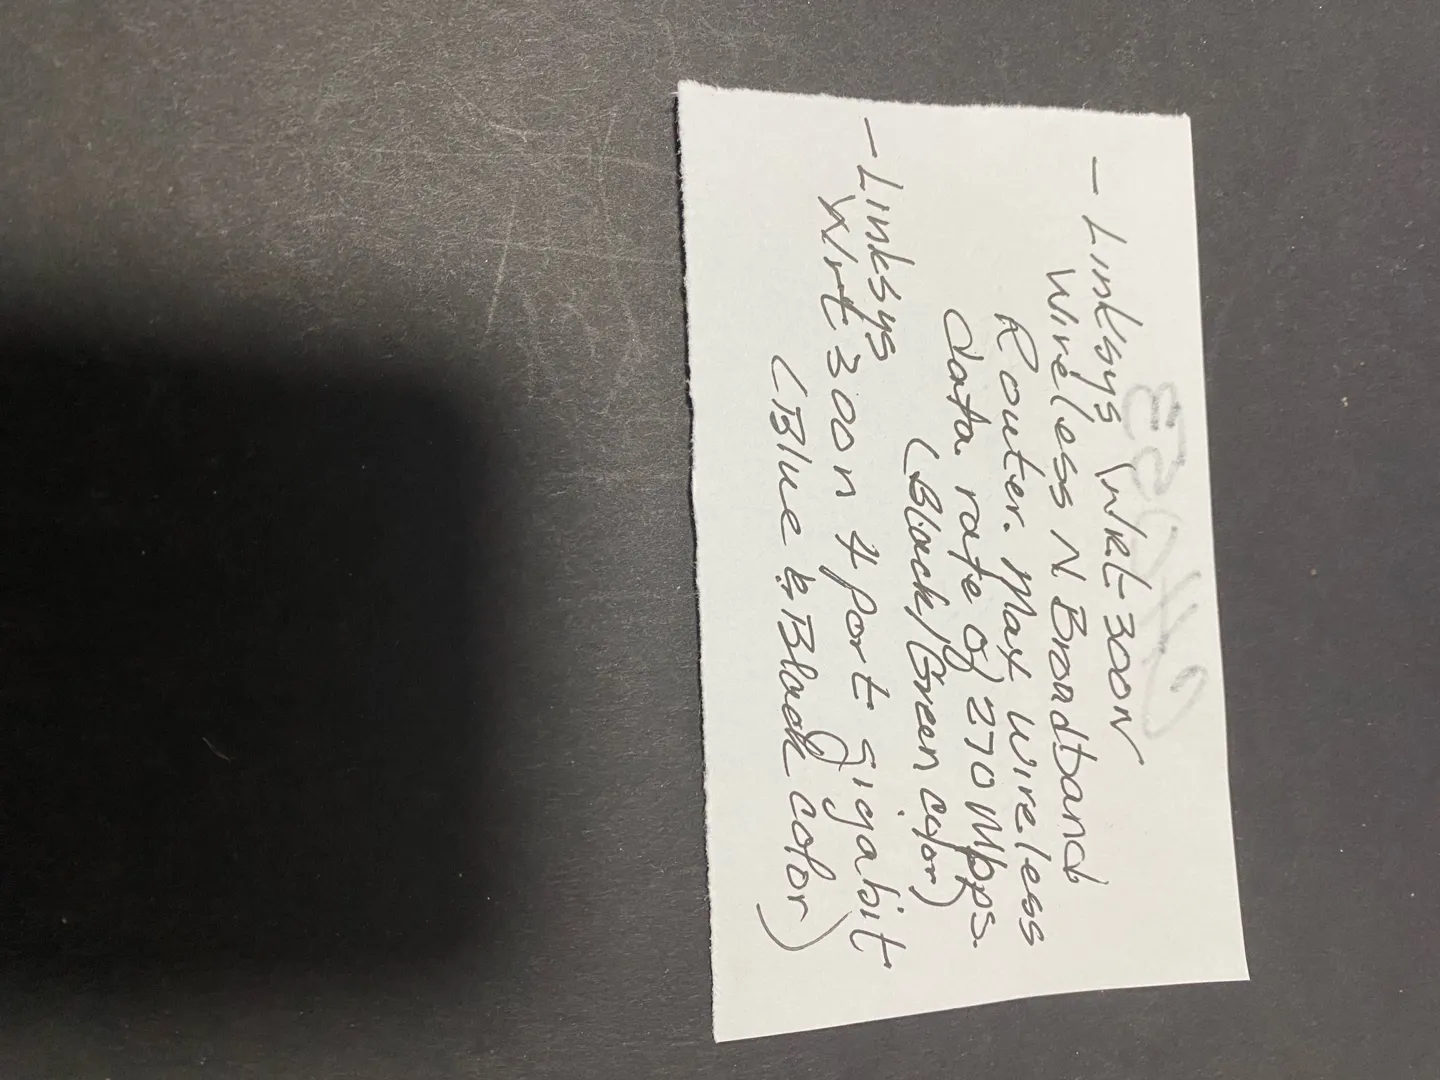 - Linksys WRT-300N
Wireless N Broadband
Router. Max Wireless
data rate of 270 Mbps.
(Black/Green color)
- Linksys
Wrt 300n 4 port gigabit
(Blue & Black color)